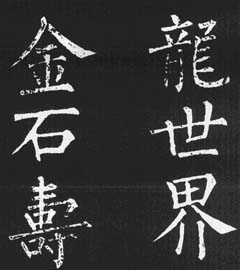 龍世界
金石壽